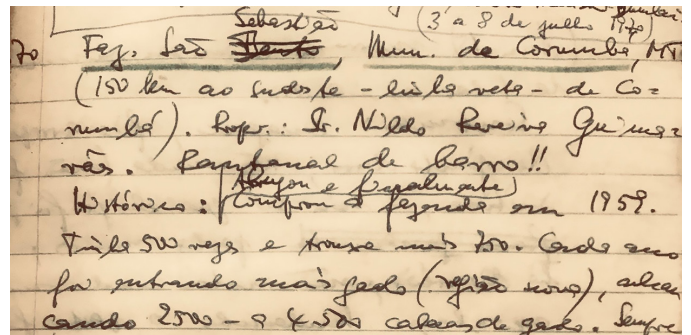 (3 a 8 de julho 1970)
Sebastião
70 Faz. São Bento, Mun. de Corumbá, MT
(150 km ao sudeste - linha reta - de Co=
rumbá). Propr.: Sr. Nildo Pereira Guima=
rães. Pantanal de barro!!
Alugou e finalmente
Histórico: Comprou a fazenda em 1959.
Tinha 500 vezes e trouxe mais 750. Cada ano
foi entrando mais gado (região nova), alcan
cando 2500 - a 4.500 cabeças de gado. Sempre